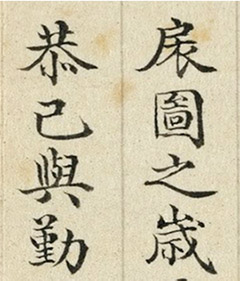 扆圖之嵗
恭己與勤